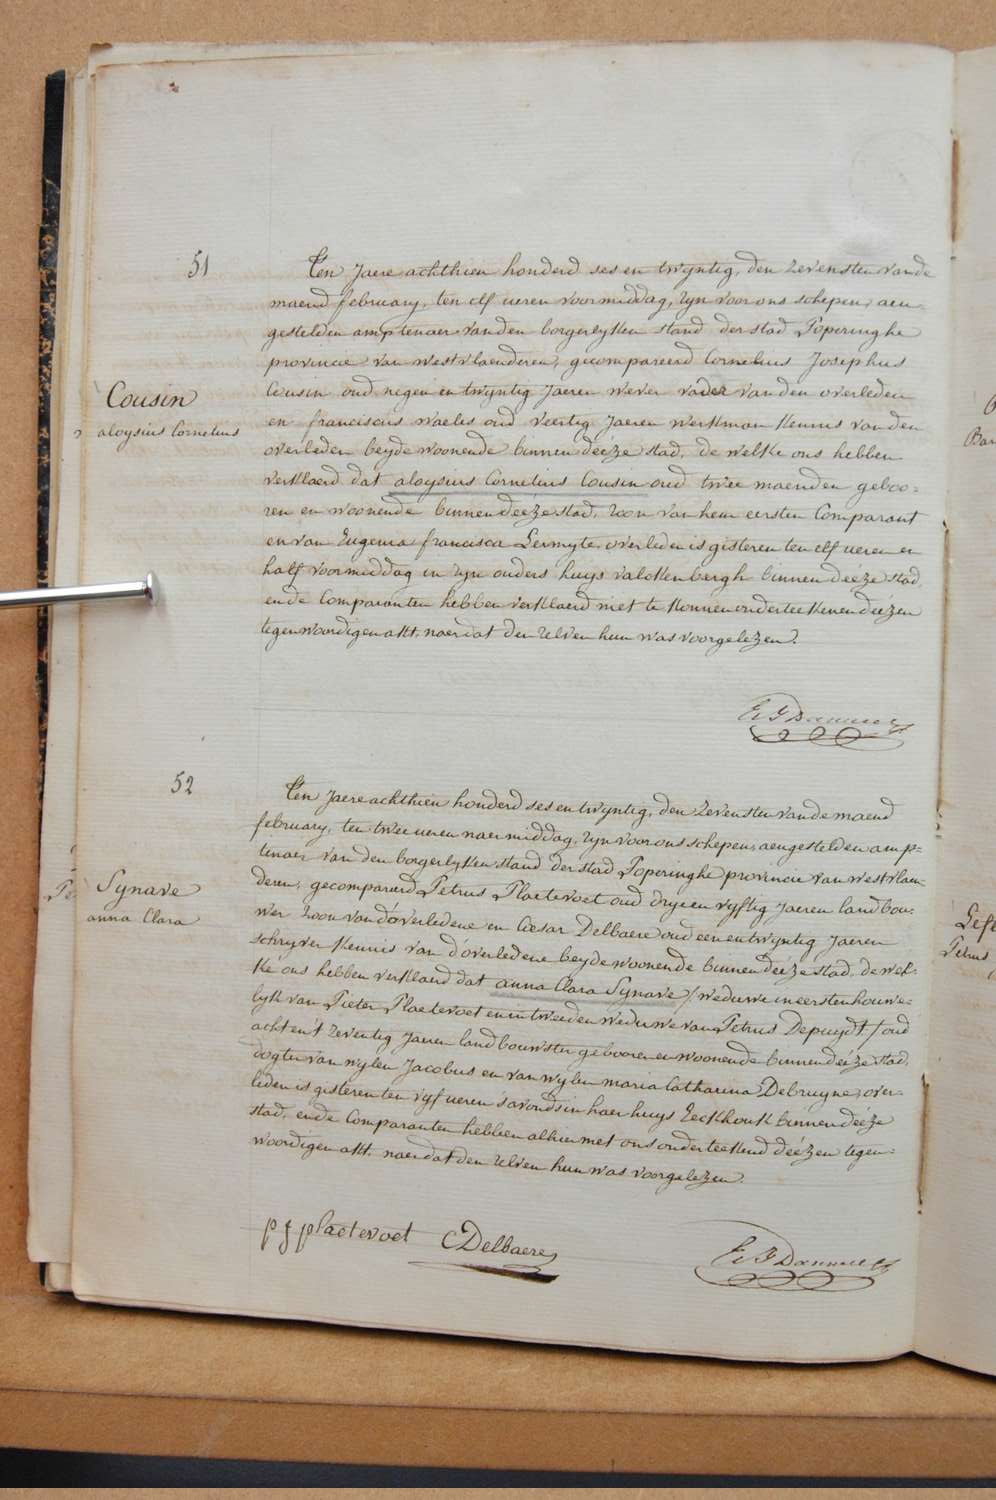 51
Ten Jaere achthien honderd ses en twyntig, den zevensten van de
maend february, ten elf ueren voormiddag, zyn voor ons schepen, aen-
gestelden amptenaer van den borgerlyken stand der stad Poperinghe
provincie van westvlaenderen, gecompareerd Cornelius Josephus
Cousin oud negen en twyntig Jaeren wever vader van den overleden
Cousin
aloysius Cornelius
en franciscus waeles oud veertig Jaeren werkman Kennis van den
overleden beyde woonende binnen deéze stad, de welke ons hebben
verklaerd dat aloysius Cornelius Cousin oud twee maenden geboo=
ren en woonende binnen deéze stad, zoon van hem eersten Comparant
en van Eugenia francisca Lermyte, overleden is gisteren ten elf ueren en
half voormiddag in zyn ouders huys valckenbergh binnen deéze stad,
en de Comparanten hebben verklaerd niet te konnen onderteekenen deézen
tegenwoordigen akt, naer dat den zelven hun was voorgelezen.
52
Ten Jaere achthien honderd ses en twyntig, den zevensten van de maend
february, ten twee ueren naermiddag, zyn voor ons schepen, aengestelden amp-
tenaer van den borgerlyken stand der stad Poperinghe provincie van westvlaen-
deren, gecompareerd Petrus Plaetevoet oud drye en vyftig Jaeren landbou-
wer zoon van d'overledene en Cæsar Delbaere oud een en twyntig Jaeren
Synave
anna Clara
schryver Kennis van d'overledene beyde woonende binnen deéze stad, de wel-
ke ons hebben verklaerd dat anna Clara Synave /weduwe in eersten houwe-
lyk van Pieter Plaetevoet en in tweeden weduwe van Petrus Depuydt/ oud
acht en 't zeventig Jaeren landbouwster gebooren en woonende binnen deéze stad,
dogter van wylen Jacobus en van wylen maria Catharina Debruyne, over-
leden is gisteren ten vyf ueren s'avonds in haer huys Eeckhouk binnen deéze
stad, en de Comparanten hebben alhier met ons onderteekend deézen tegen-
woordigen akt, naer dat den zelven hun was voorgelezen.
p j plaetevoet C Delbaere